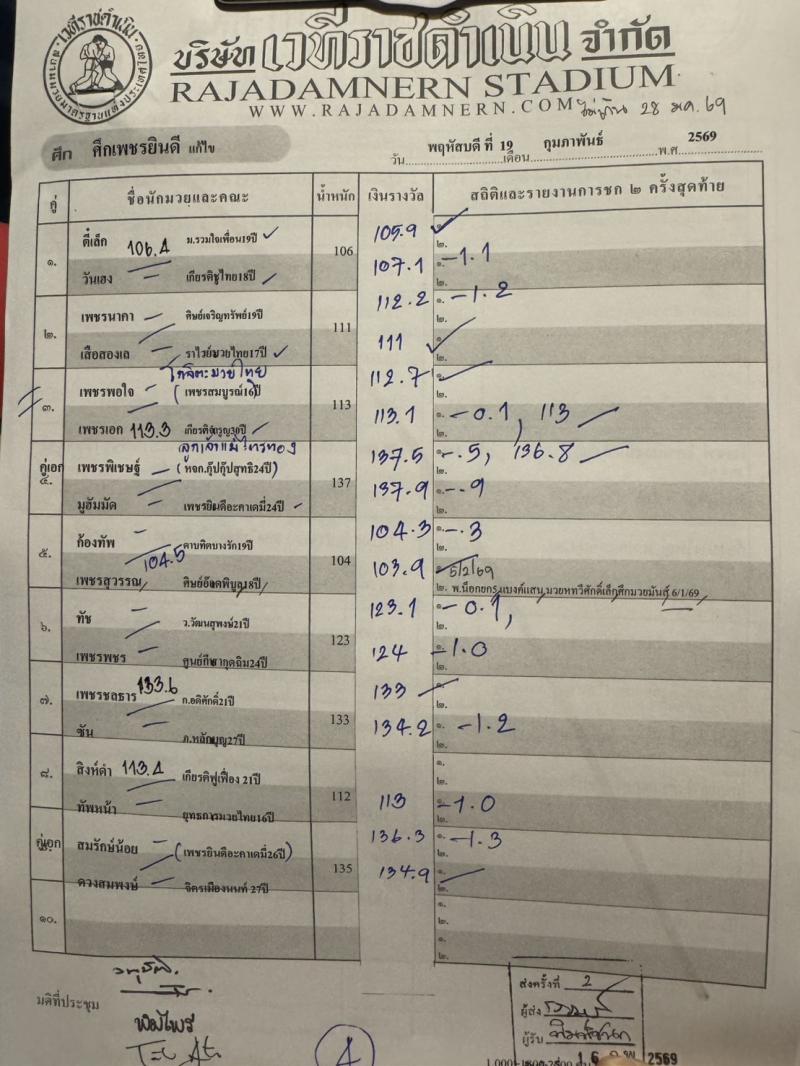 บริษัท เวทีราชดำเนิน จำกัด
RAJADAMNERN STADIUM
WWW.RAJADAMNERN.COM
28 มค. 69
ศึก ศึกเพชรยินดี แก้ไข
วัน พฤหัสบดี ที่ 19 เดือน กุมภาพันธ์ พ.ศ 2569
คู่ ชื่อนักมวยและคณะ น้ำหนัก เงินรางวัล สถิติและรายงานการชก ๒ ครั้งสุดท้าย
๑. ตี๋เล็ก 106.4 ม.รวมใจเพื่อน19ปี 106 105.9 ๒.
วันเฮง เกียรติชูไทย18ปี 107.1 ๑. -1.1 ๒.
๒. เพชรนาคา ศิษย์เจริญทรัพย์19ปี 111 112.2 ๑. -1.2 ๒.
เสือสองเล ราไวย์มวยไทย17ปี 111 ๒.
โกจิตะมวยไทย
๓. เพชรพอใจ (เพชรสมบูรณ์16ปี) 113 112.7 ๒.
เพชรเอก 113.3 เกียรติจำรูญ30ปี 113.1 ๑. -0.1, 113 ๒.
ลูกเจ้าแม่ไทรทอง
คู่เอก ๔. เพชรพิเชษฐ์ (หจก.กู๊ปกู๊ปสุทธิ24ปี) 137 137.5 ๑. -.5, 136.8 ๒.
มูฮัมมัด เพชรยินดีอะคาเดมี่24ปี 137.9 ๑. -.9 ๒.
๕. ก้องทัพ ดาบพิตบางรัก19ปี 104 104.3 ๑. -.3 ๒.
เพชรสุวรรณ 104.5 ศิษย์อ๊อดพิบูล18ปี 103.9 5/2/69
๒. พ.น็อกยกรแบงค์แสน,มวยหทวีศักดิ์เล็กศึกมวยมันส์ 6/1/69
๖. ทัช ว.วัฒนสุพงษ์21ปี 123 123.1 ๑. -0.1, ๒.
เพชรพชร ศูนย์กีฬากุดฉิม24ปี 124 ๑. -1.0 ๒.
๗. เพชรชลธาร 133.6 ก.อดิศักดิ์21ปี 133 133 ๒.
ซัน ภ.หลักบุญ27ปี 134.2 ๑. -1.2 ๒.
๘. สิงห์ดำ 113.4 เกียรติฟูเฟื่อง 21ปี 112 ๑. ๒.
ทัพหน้า ยุทธการมวยไทย16ปี 113 -1.0 ๒.
คู่เอก สมรักษ์น้อย (เพชรยินดีอะคาเดมี่26ปี) 135 136.3 ๑. -1.3 ๒.
ดวงสมพงษ์ จิตรเมืองนนท์ 27ปี 134.9 ๑. ๒.
๑๐. ๑. ๒.
๑. ๒.
มติที่ประชุม
พิมไพร
4
ส่งครั้งที่ 2
ผู้ส่ง
ผู้รับ
2569